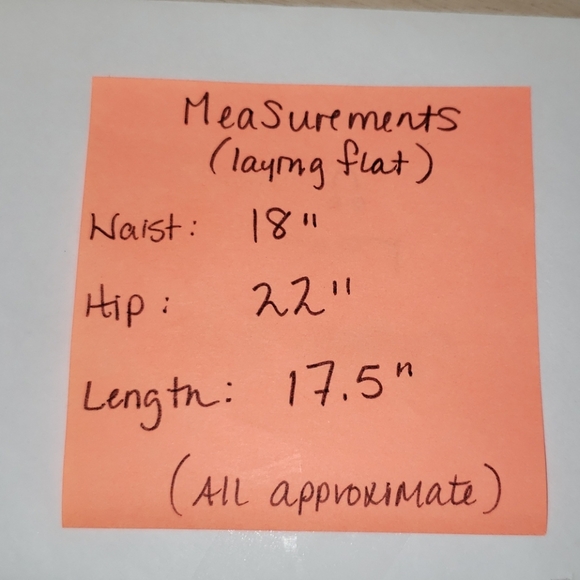 MeaSurements
(laying flat)
Waist: 18"
Hip: 22"
Length: 17.5"
(All approximate)